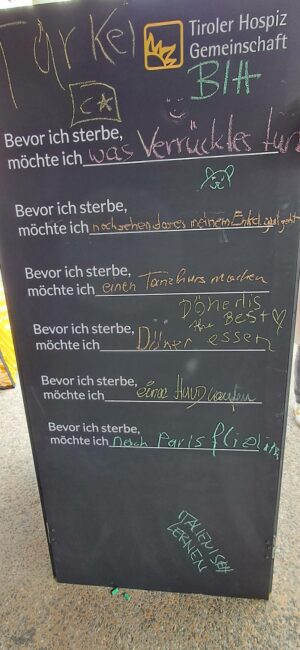 Türkei
Tiroler Hospiz
Gemeinschaft
BIH
C★
Bevor ich sterbe,
möchte ich was Verrücktes tun
Bevor ich sterbe,
möchte ich noch sehen dass es meinem Enkel gut geht
Bevor ich sterbe,
möchte ich einen Tanzkurs machen
Döner is
the BEST♡
Bevor ich sterbe,
möchte ich Döner essen
Bevor ich sterbe,
möchte ich eine Hund kaufen
Bevor ich sterbe,
möchte ich nach Paris
ITALIENISCH
LERNEN